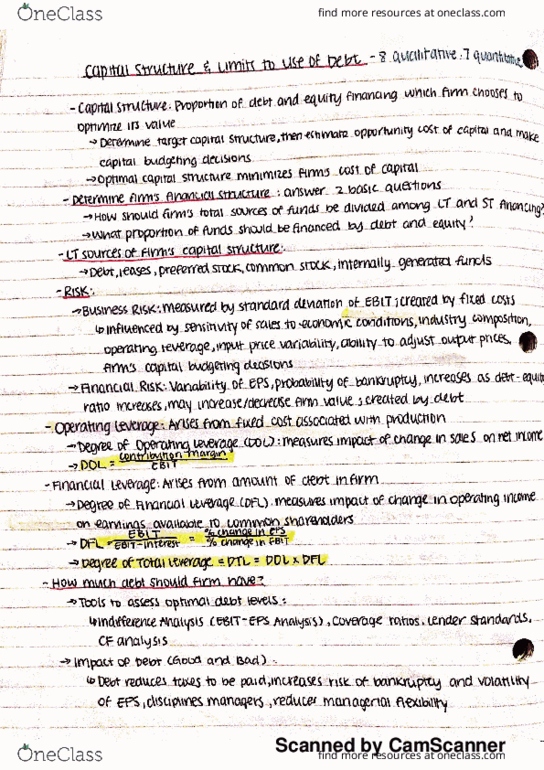 OneClass
find more resources at oneclass.com
Capital Structure & Limits to Use of Debt - 8 qualitative, 7 quantitative
- Capital Structure: Proportion of debt and equity financing which firm chooses to
optimize its value
→ Determine target capital structure, then estimate opportunity cost of capital and make
capital budgeting decisions
→ Optimal capital structure minimizes firm's cost of capital
- Determine firm's financial structure: answer 2 basic questions
→ How should firm's total sources of funds be divided among LT and ST financing?
→ What proportion of funds should be financed by debt and equity?
- LT sources of firm's capital structure:
→ Debt, leases, preferred stock, common stock, internally generated funds
- RISK:
→ Business Risk: measured by standard deviation of EBIT; created by fixed costs
↳ Influenced by sensitivity of sales to economic conditions, industry composition,
operating leverage, input price variability, ability to adjust output prices,
firm's capital budgeting decisions
→ Financial Risk: Variability of EPS, probability of bankruptcy, increases as debt-equity
ratio increases, may increase/decrease firm value; created by debt
- Operating Leverage: Arises from fixed cost associated with production
→ Degree of Operating Leverage (DOL): measures impact of change in sales on net income
→ DOL = contribution margin / EBIT
- Financial Leverage: Arises from amount of debt in firm
→ Degree of Financial Leverage (DFL): measures impact of change in operating income
on earnings available to common shareholders
→ DFL = EBIT / EBIT-Interest = % change in EPS / % change in EBIT
→ Degree of Total Leverage = DTL = DOL x DFL
- How much debt should firm have?
→ Tools to assess optimal debt levels:
↳ Indifference Analysis (EBIT-EPS Analysis), coverage ratios, lender standards,
CF analysis
→ Impact of Debt (Good and Bad):
↳ Debt reduces taxes to be paid, increases risk of bankruptcy and volatility
of EPS, disciplines managers, reduces managerial flexibility
Scanned by CamScanner
OneClass
find more resources at oneclass.com